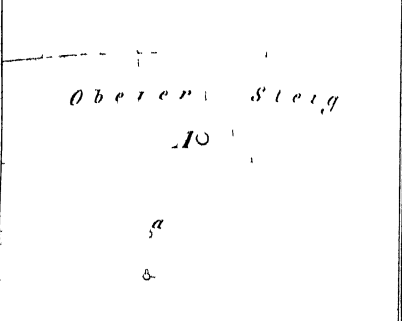 Oberer Steig
10
a